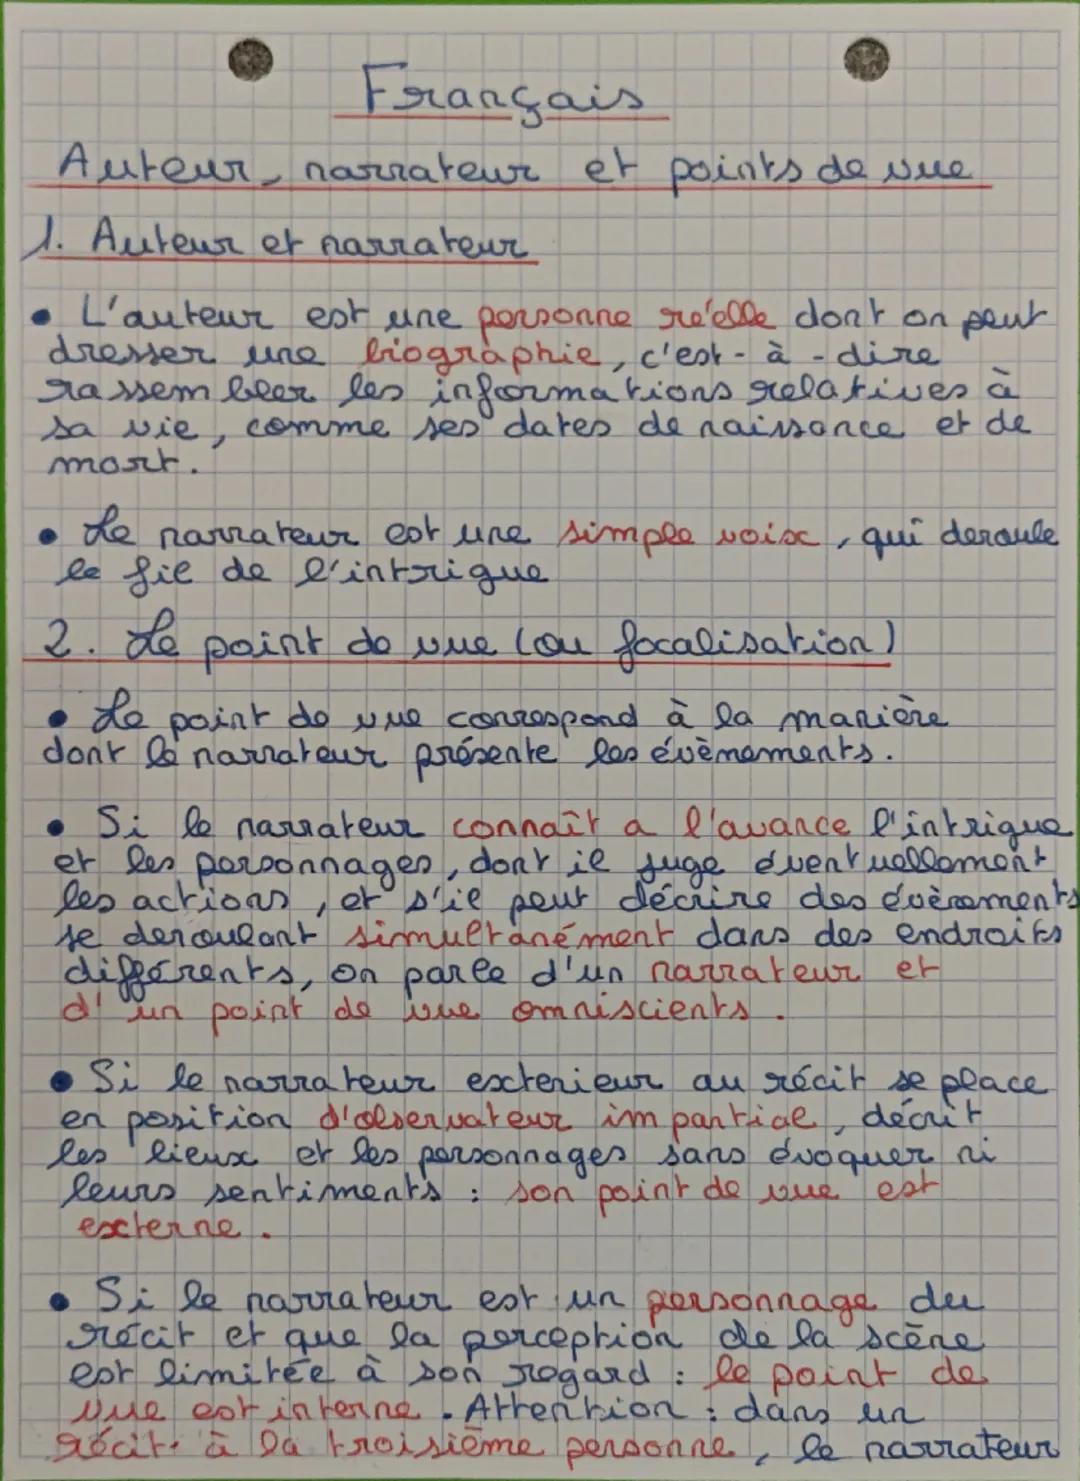 Français
Auteur, narrateur et points de vue
1. Auteur et narrateur
• L'auteur est une personne réelle dont on peut
dresser une biographie, c'est-à-dire
rassembler les informations relatives à
sa vie, comme ses dates de naissance et de
mort.
• Le narrateur est une simple voix, qui deroule
le fil de l'intrigue
2. Le point de vue (ou focalisation)
• Le point de vue correspond à la manière
dont le narrateur présente les évènements.
• Si le narrateur connaît a l'avance l'intrigue
et les personnages, dont il juge éventuellement
les actions, et s'il peut décrire des évènements
se deroulant simultanément dans des endroits
différents, on parle d'un narrateur et
d'un point de vue omniscients.
• Si le narrateur exterieur au récit se place
en position d'observateur impartial, décrit
les lieux et les personnages sans évoquer ni
leurs sentiments : son point de vue est
externe.
• Si le narrateur est un personnage du
récit et que la perception de la scène
est limitée à son regard : le point de
vue est interne. Attention : dans un
récit à la troisième personne, le narrateur